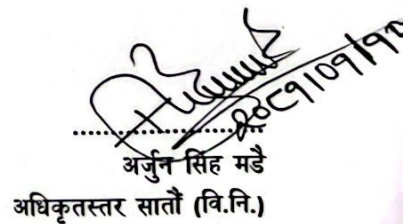 २०८१।०१।१०
अर्जुन सिंह मडै
अधिकृतस्तर सातौं (वि.नि.)